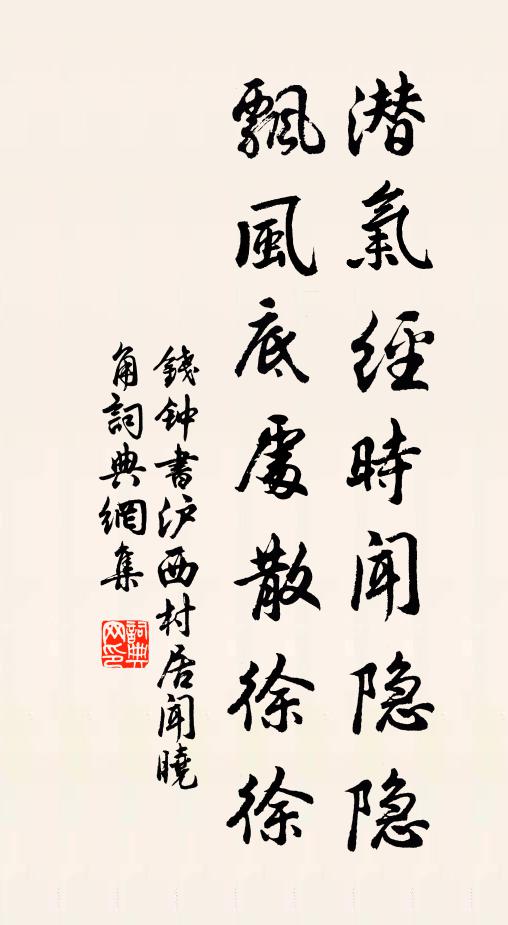 潜氣經時聞隐隐
飄風底處散徐徐
錢钟書沪西村居聞曉
角詞典網集
詞典网印